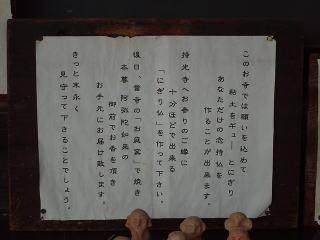 このお寺では願いを込めて
粘土をギュ――とにぎり
あなただけの念持仏を
作ることが出来ます。
持光寺へお参りのご縁に
十分ほどで出来る
「にぎり仏」を作って下さい。
後日、当寺の「お庭窯」で焼き
本尊阿弥陀如来の
御前でお香を頂き
お手元にお届け致します。
きっと末永く
見守って下さることでしょう。